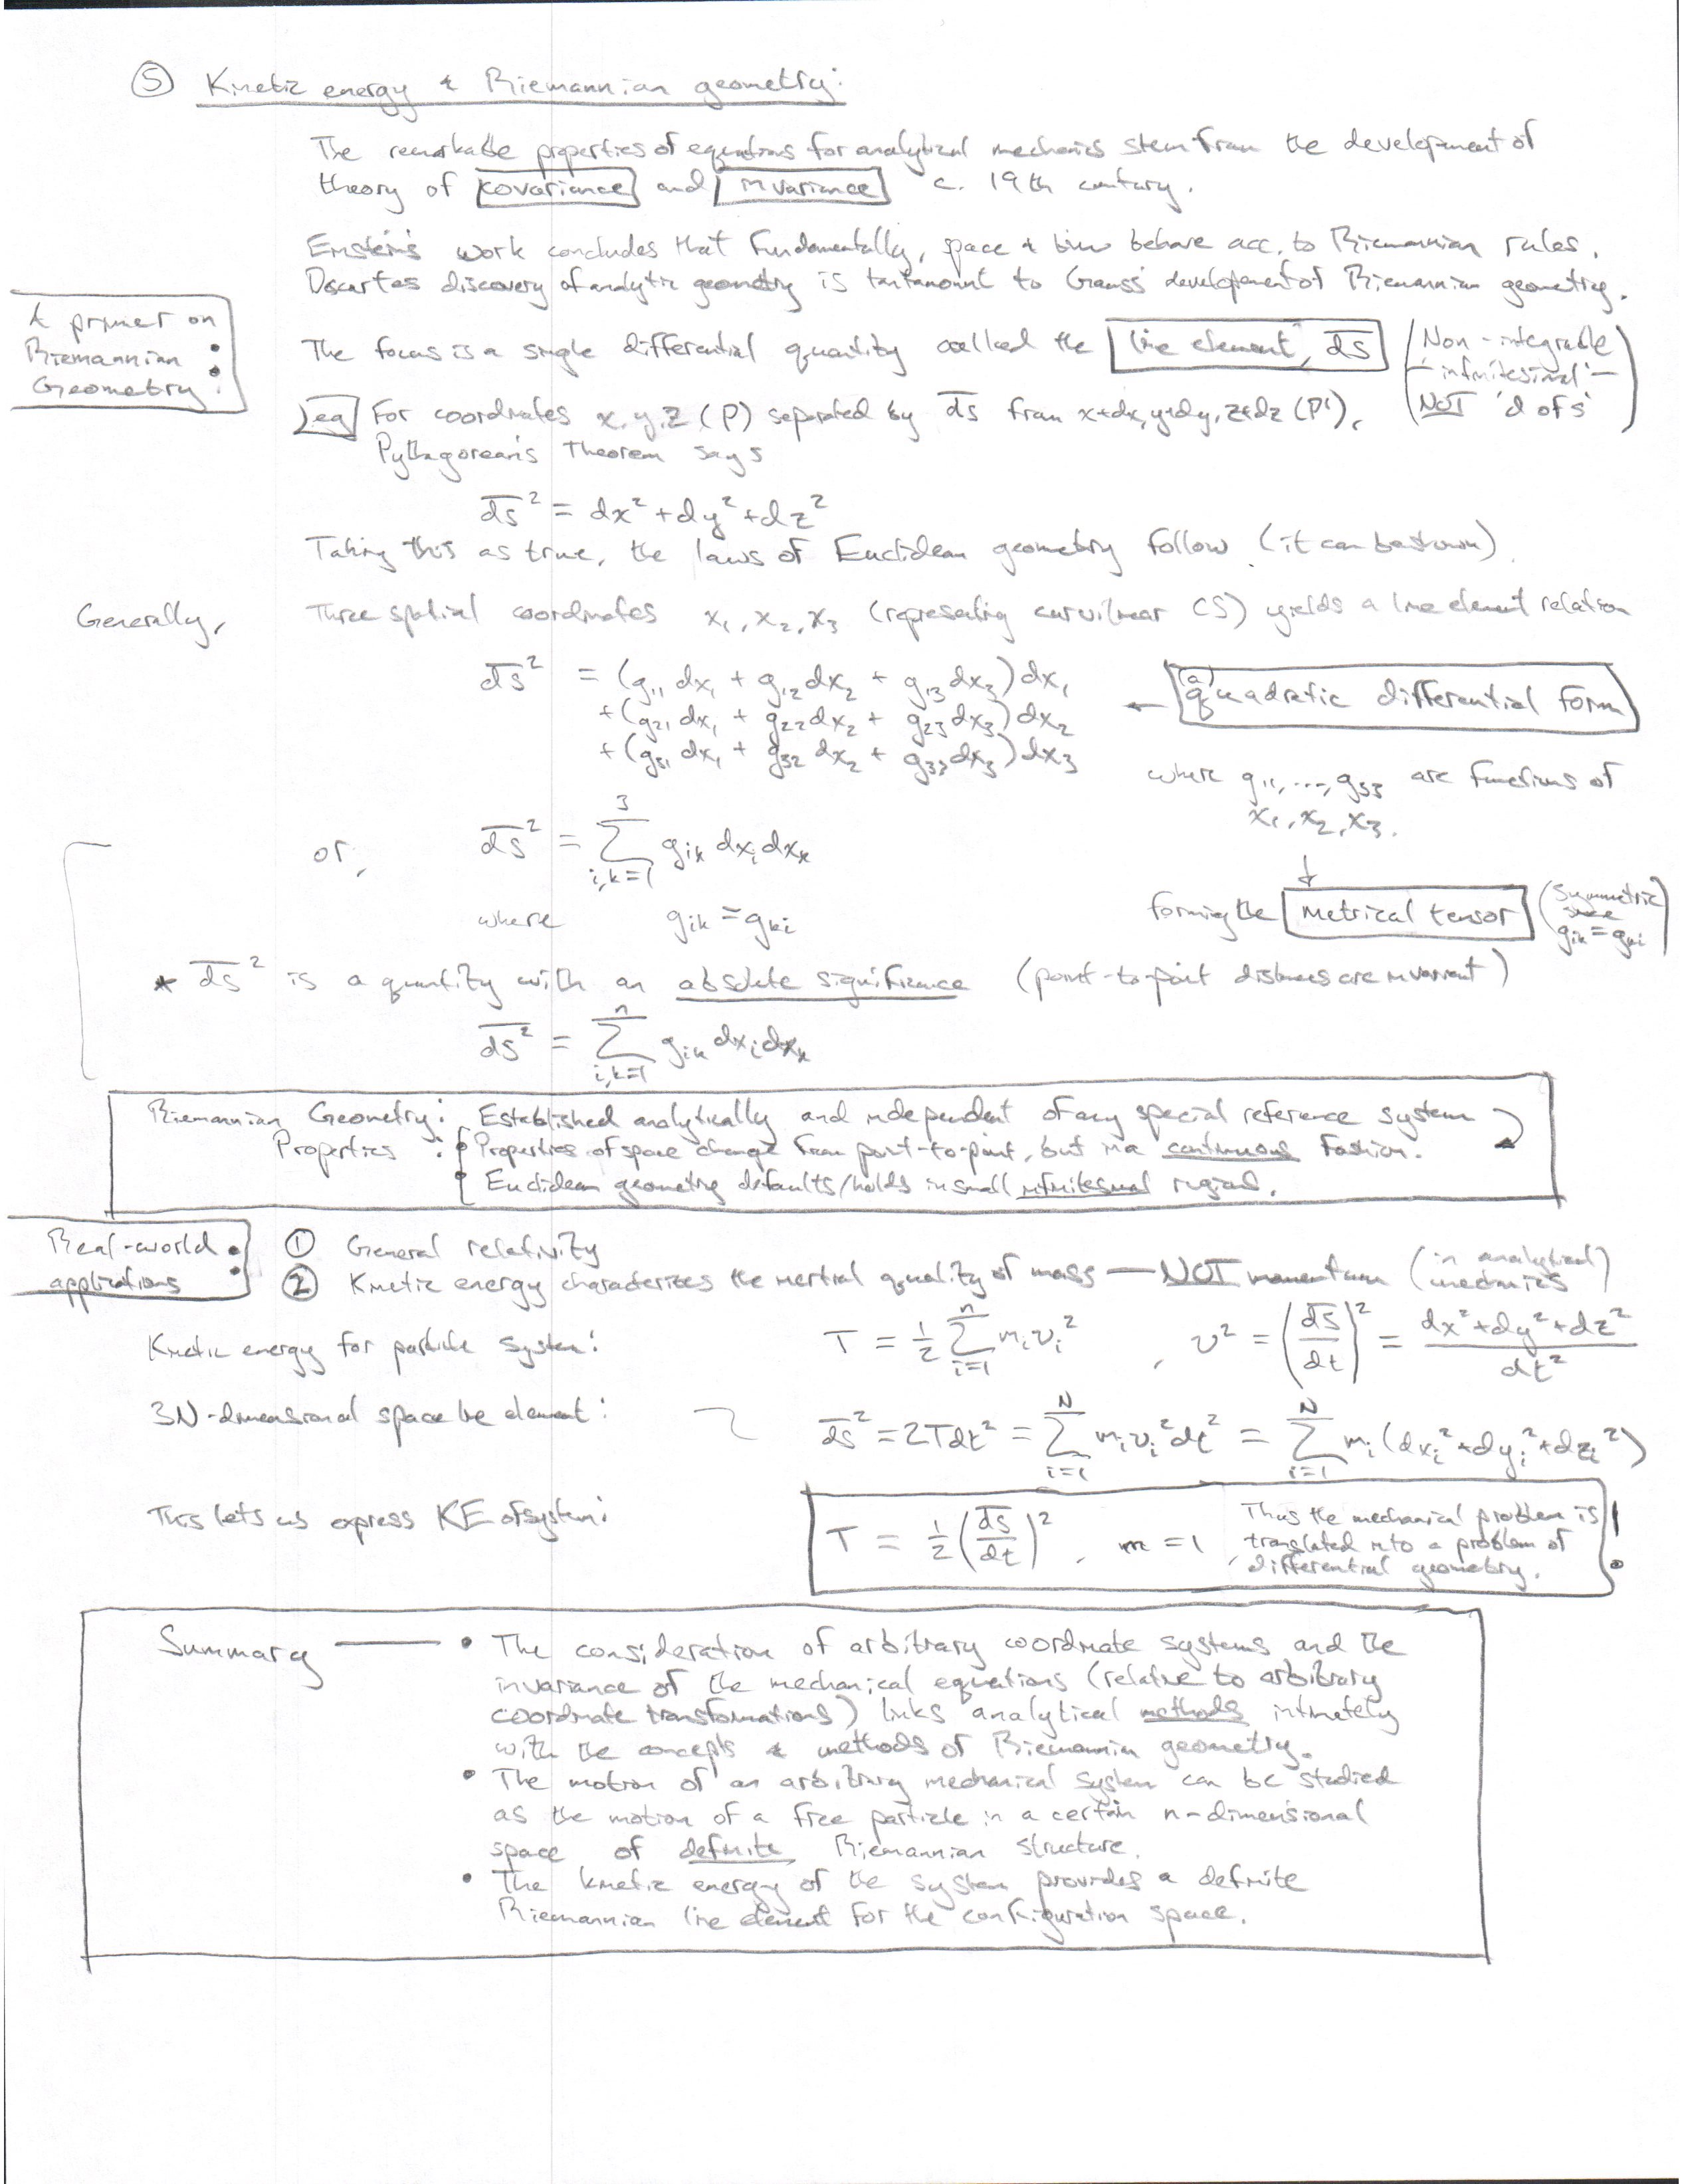 ⑤ Kinetic energy & Riemannian geometry:
The remarkable properties of equations for analytical mechanics stem from the development of
theory of covariance and invariance c. 19th century.
Einstein's work concludes that fundamentally, space & time behave acc. to Riemannian rules.
Descartes discovery of analytic geometry is tantamount to Gauss' development of Riemannian geometry.
A primer on
Riemannian
Geometry:
The focus is a single differential quantity called the line element, d̅s̅
(Non-integrable
- infinitesimal -
NOT 'd of s')
eg For coordinates x, y, z (P) separated by d̅s̅ from x+dx, y+dy, z+dz (P'),
Pythagorean's Theorem says
d̅s̅² = dx² + dy² + dz²
Taking this as true, the laws of Euclidean geometry follow (it can be shown).
Generally, Three spatial coordinates x₁, x₂, x₃ (representing curvilinear CS) yields a line element relation
d̅s̅² = (g₁₁ dx₁ + g₁₂ dx₂ + g₁₃ dx₃) dx₁
+ (g₂₁ dx₁ + g₂₂ dx₂ + g₂₃ dx₃) dx₂
+ (g₃₁ dx₁ + g₃₂ dx₂ + g₃₃ dx₃) dx₃
← (a) quadratic differential form
where g₁₁, ..., g₃₃ are functions of
x₁, x₂, x₃.
↓
forming the metrical tensor (symmetric
since
gᵢₖ = gₖᵢ)
or, d̅s̅² = Σ³ᵢ,ₖ₌₁ gᵢₖ dxᵢ dxₖ
where gᵢₖ = gₖᵢ
* d̅s̅² is a quantity with an absolute significance (point-to-point distances are invariant)
d̅s̅² = Σⁿᵢ,ₖ₌₁ gᵢₖ dxᵢ dxₖ
Riemannian Geometry: Established analytically and independent of any special reference system
Properties : • Properties of space change from point-to-point, but in a continuous fashion.
• Euclidean geometry defaults/holds in small infinitesimal regions.
Real-world
applications :
① General relativity
② Kinetic energy characterizes the inertial quality of mass — NOT momentum (in analytical
mechanics)
Kinetic energy for particle system: T = ½ Σⁿᵢ₌₁ mᵢvᵢ² , v² = (d̅s̅/dt)² = (dx² + dy² + dz²)/dt²
3N-dimensional space line element: d̅s̅² = 2Tdt² = Σᴺᵢ₌₁ mᵢvᵢ²dt² = Σᴺᵢ₌₁ mᵢ(dxᵢ² + dyᵢ² + dzᵢ²)
This lets us express KE of system: T = ½ (d̅s̅/dt)², m = 1,
Thus the mechanical problem is
translated into a problem of
differential geometry. !
Summary — • The consideration of arbitrary coordinate systems and the
invariance of the mechanical equations (relative to arbitrary
coordinate transformations) links analytical methods intimately
with the concepts & methods of Riemannian geometry.
• The motion of an arbitrary mechanical system can be studied
as the motion of a free particle in a certain n-dimensional
space of definite Riemannian structure.
• The kinetic energy of the system provides a definite
Riemannian line element for the configuration space.